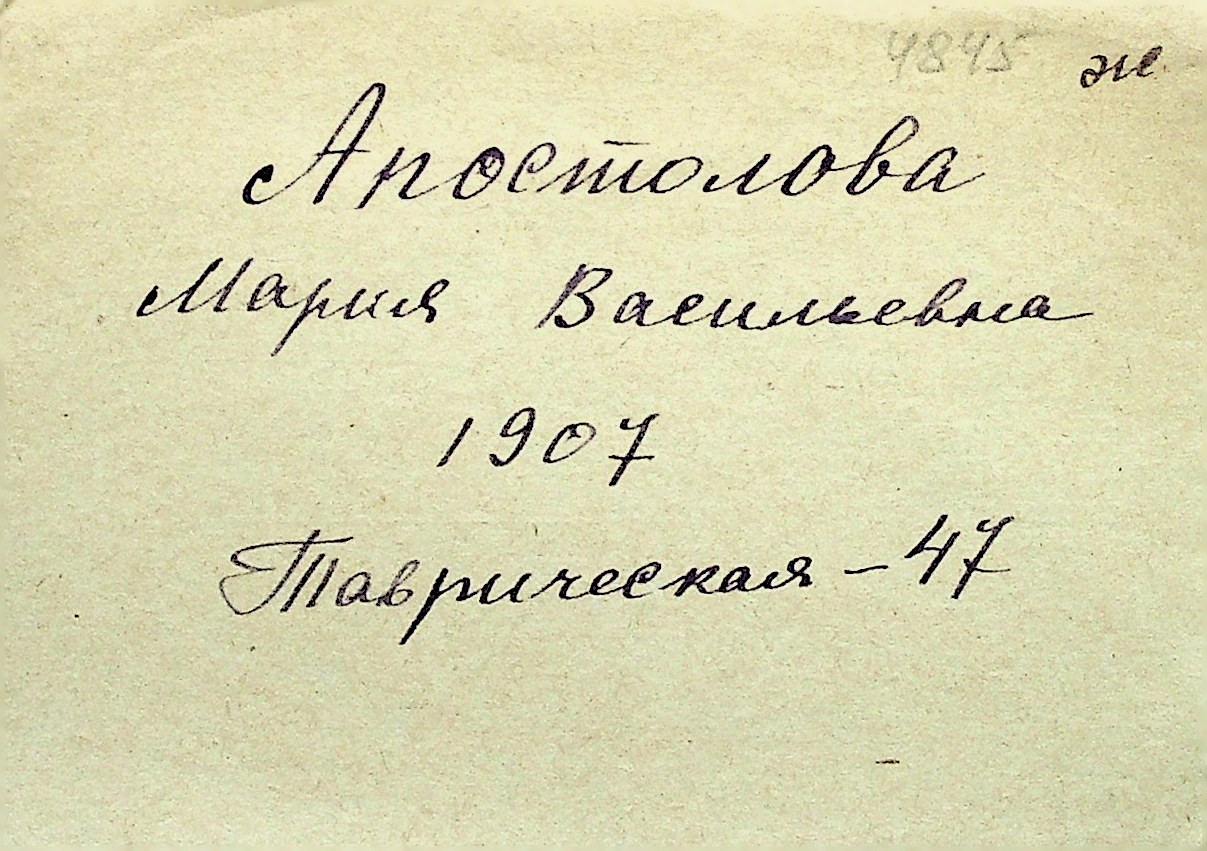 4845 ж
Апостолова
Мария Васильевна
1907
Таврическая - 47